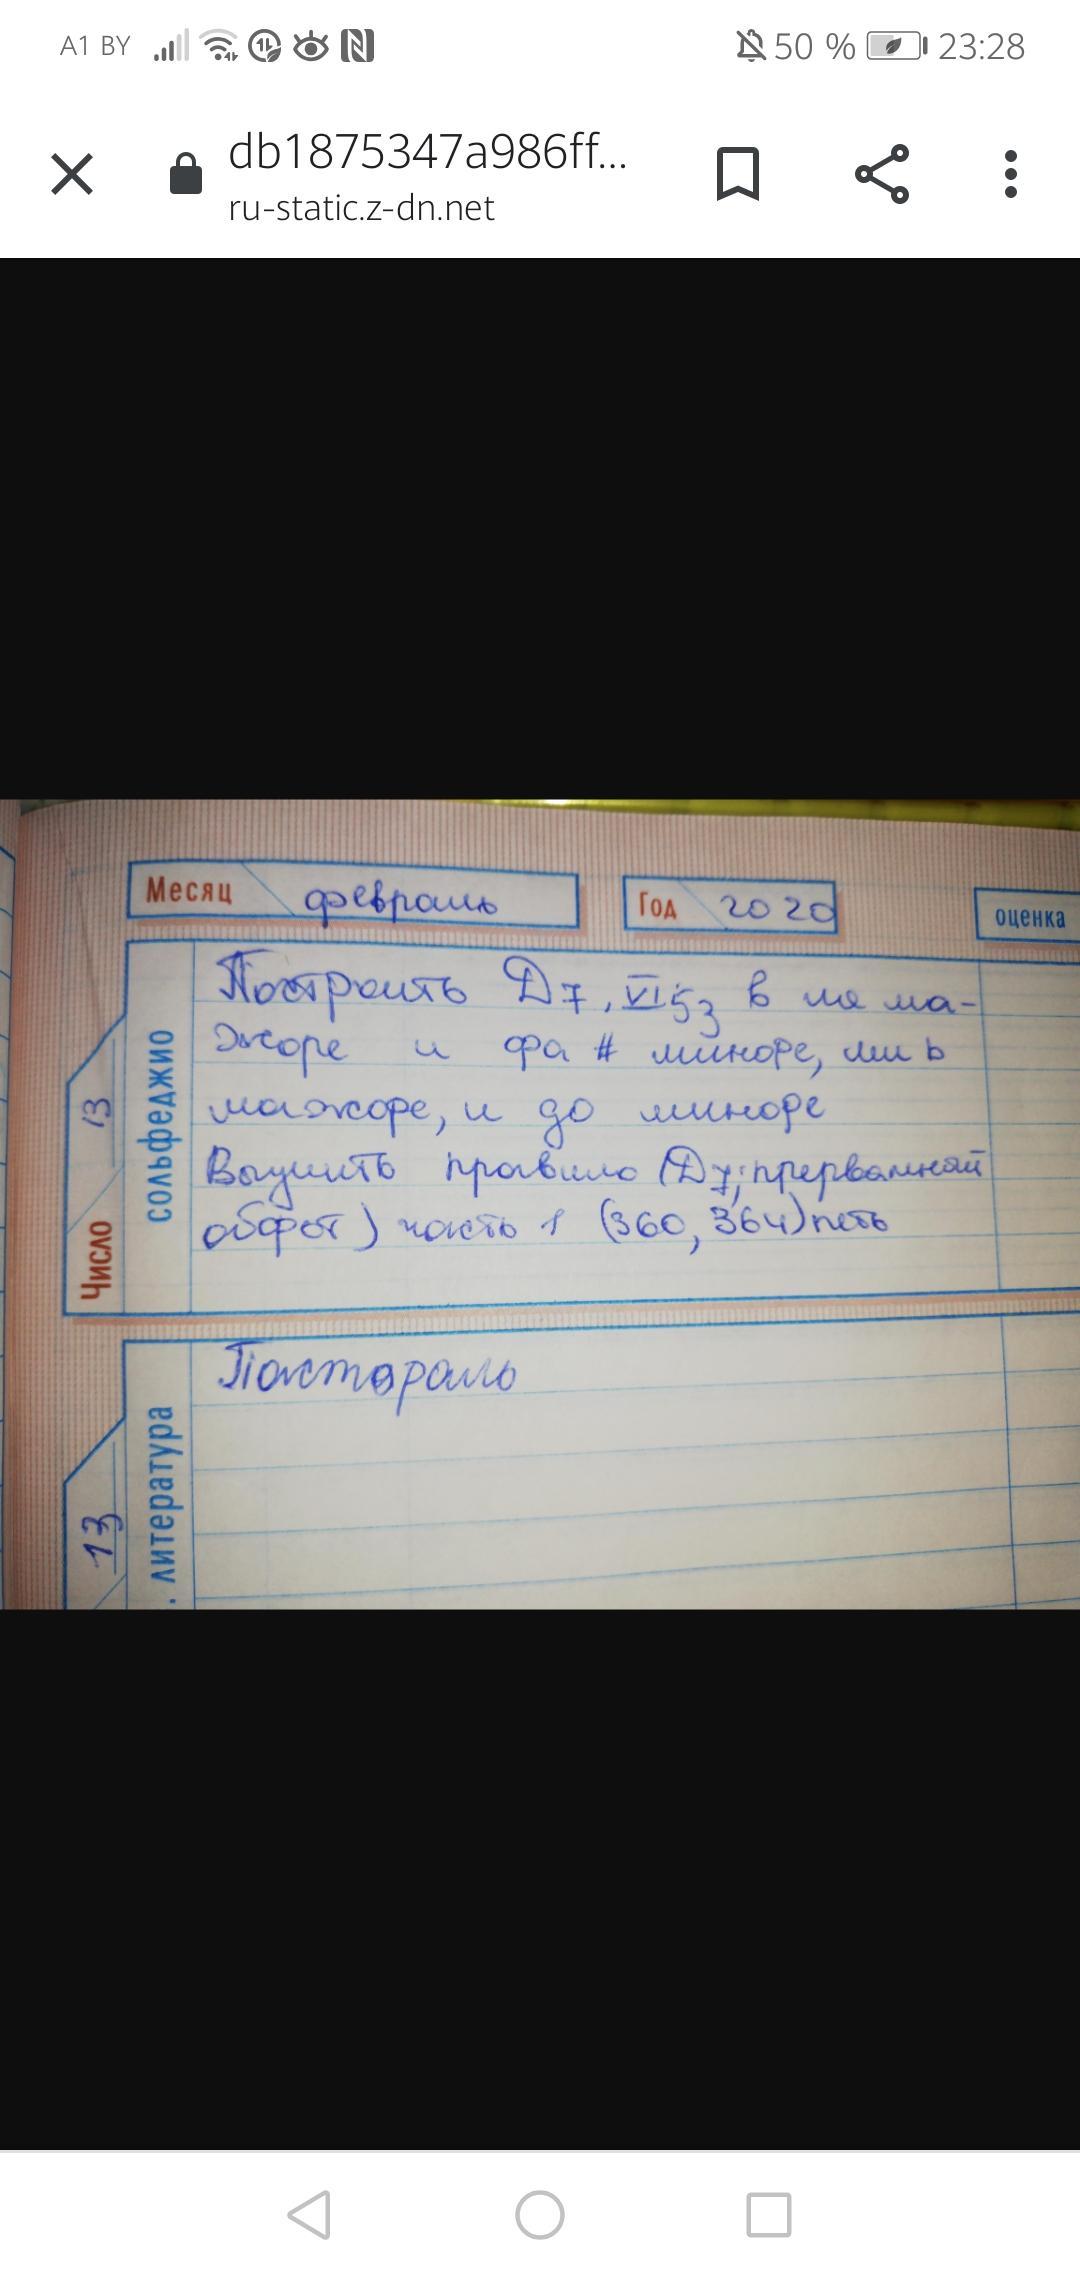 A1 BY 50 % 23:28
db1875347a986ff...
ru-static.z-dn.net
Месяц февраль Год 2020 оценка
Число 13 сольфеджио
Построить D7, VI53 в ля ма-
жоре и фа # миноре, ми b
мажоре, и до миноре
Выучить правило (D7; прерванный
оборот) часть 1 (360, 364) петь
13 . литература
Пастораль